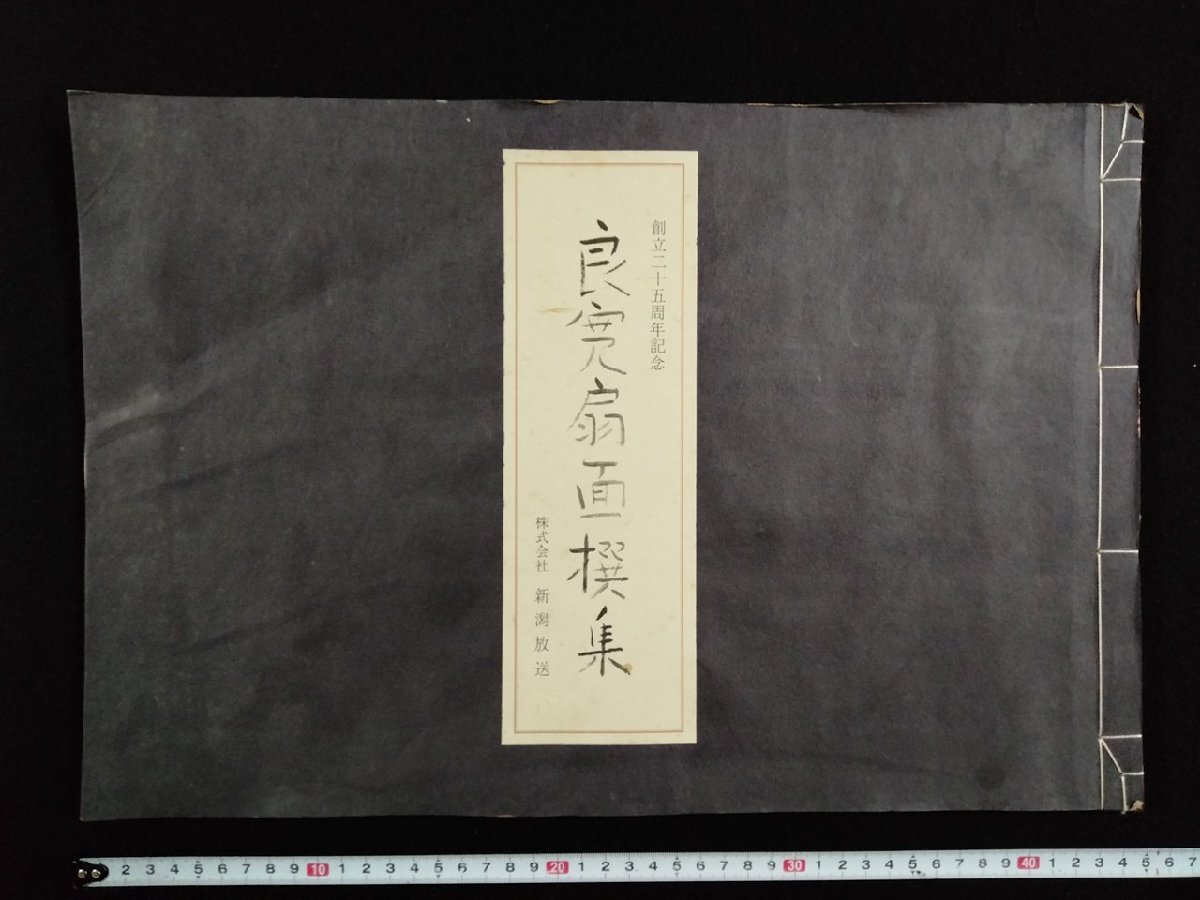 創立二十五周年記念
良寛扇面撰集
株式会社 新潟放送
2 3 4 5 6 7 8 9 10 1 2 3 4 5 6 7 8 9 20 1 2 3 4 5 6 7 8 9 30 1 2 3 4 5 6 7 8 9 40 1 2 3 4 5 6 7